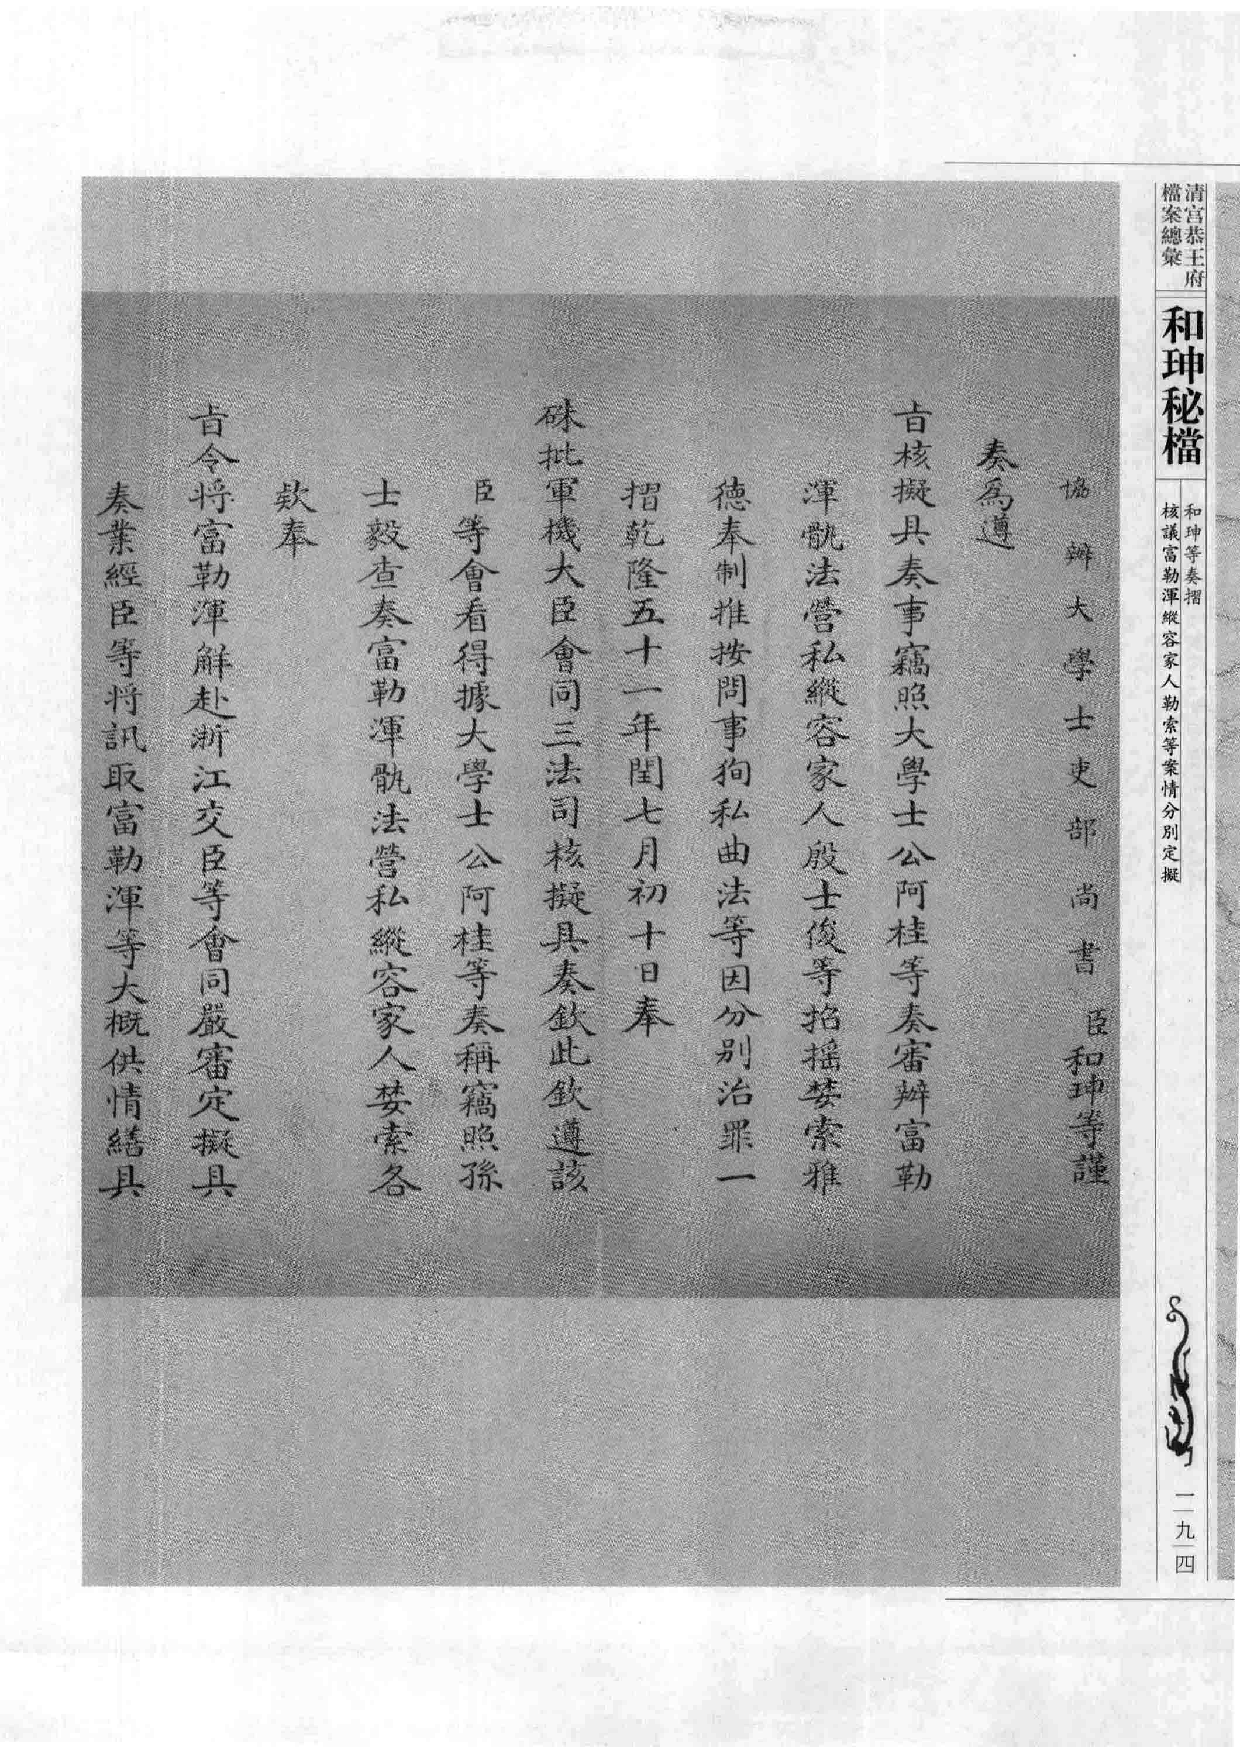 清宫恭王府
檔案總彙
和珅秘檔
和珅等奏摺
核議富勒渾縱容家人勒索等案情分別定擬
一九四
協辦大學士吏部尚書臣和珅等謹
奏為遵
旨核擬具奏事竊照大學士公阿桂等奏審辦富勒
渾骫法營私縱容家人殷士俊等招搖婪索雅
德奉制推按問事狥私曲法等因分别治罪一
摺乾隆五十一年閏七月初十日奉
硃批軍機大臣會同三法司核擬具奏欽此欽遵該
臣等會看得據大學士公阿桂等奏稱竊照孫
士毅查奏富勒渾骫法營私縱容家人婪索各
欵奉
旨令将富勒渾解赴浙江交臣等會同嚴審定擬具
奏業經臣等将訊取富勒渾等大概供情繕具